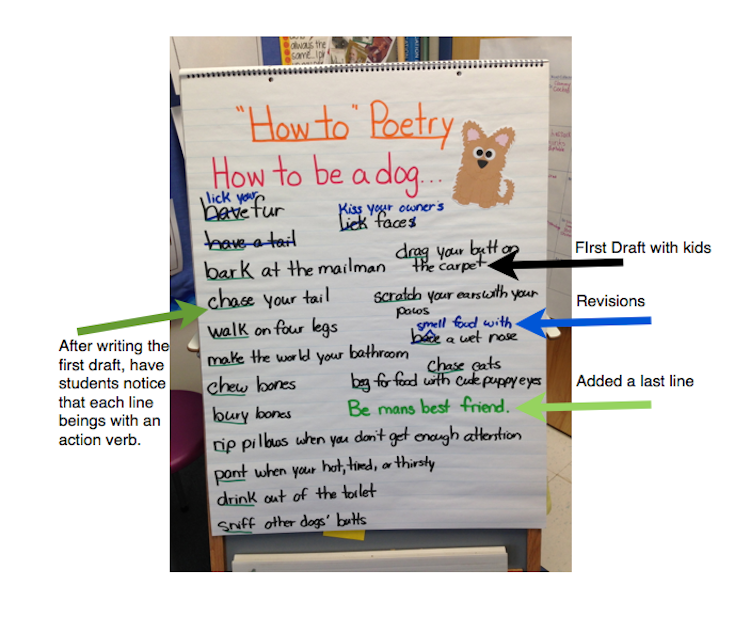 always the
same.
"How to" Poetry
How to be a dog...
lick your
have fur
have a tail
bark at the mailman
chase your tail
walk on four legs
make the world your bathroom
chew bones
bury bones
Kiss your owner's
lick faces
drag your butt on
the carpet
scratch your ears with your
paws
smell food with
have a wet nose
chase cats
beg for food with cute puppy eyes
Be mans best friend.
rip pillows when you don't get enough attention
pant when your hot, tired, or thirsty
drink out of the toilet
sniff other dogs' butts
After writing the
first draft, have
students notice
that each line
beings with an
action verb.
FIrst Draft with kids
Revisions
Added a last line